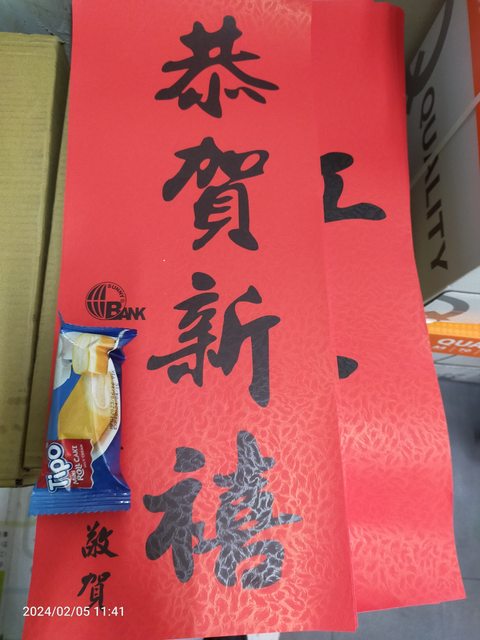 恭賀新禧
SUNNY
BANK
敬賀
Tipo
ROLL CAKE
QUALITY
QUA
2024/02/05 11:41